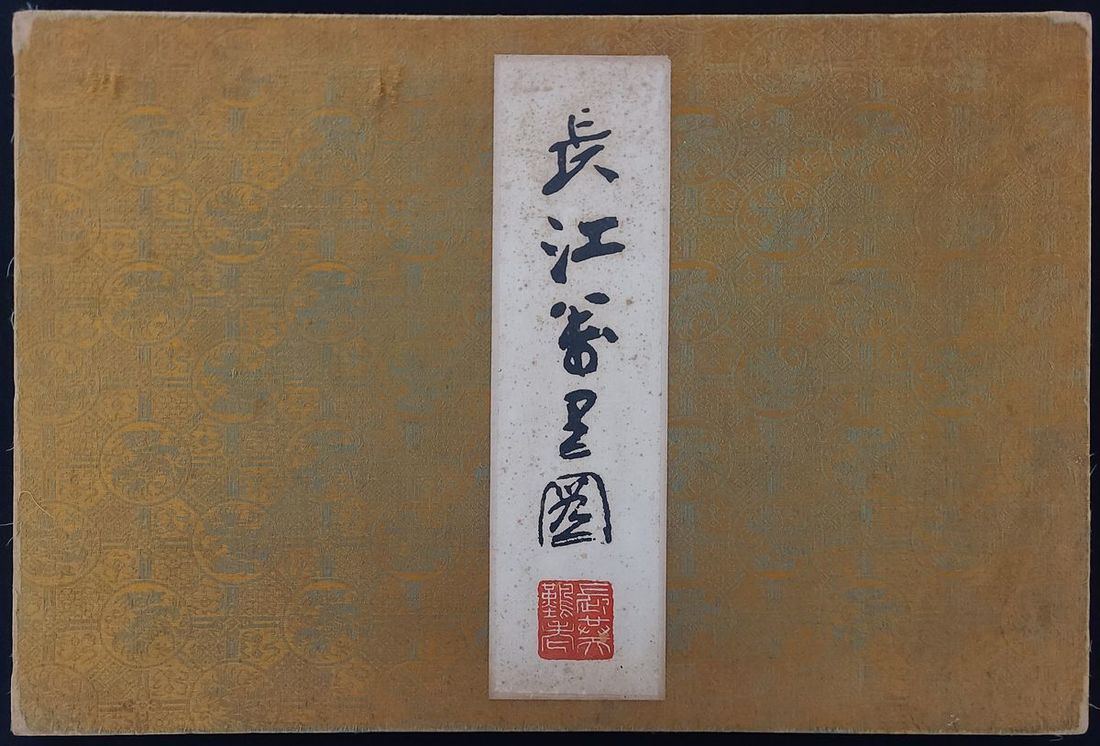 長江萬里圖